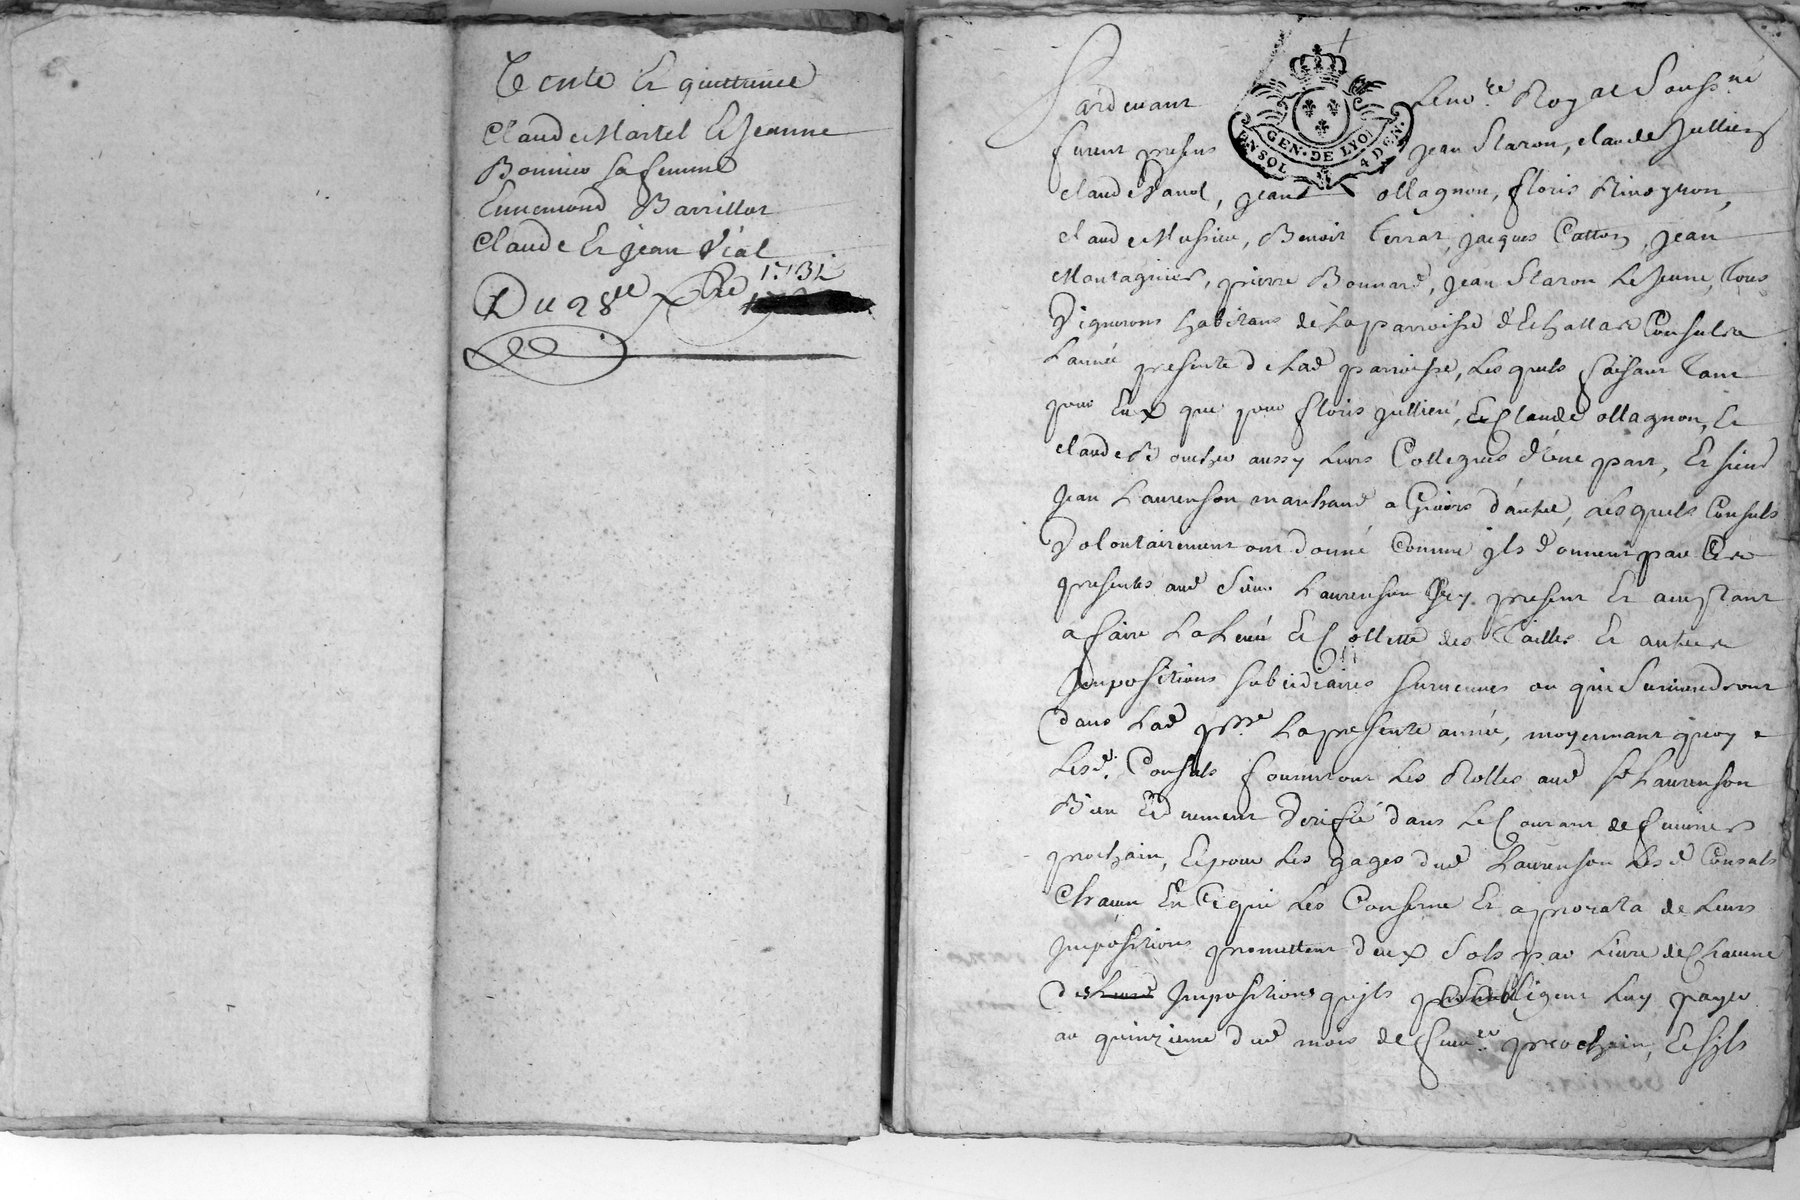 Vente Et quittance
Claude Martel Et Jeanne
Bonnier sa femme
Ennemond Barrillot
Claude Et Jean Vial
Du 28e Xbre 1731
Pardevant Le nore Royal Soussné
GEN. DE LYON
EN SOL 4 DEN.
furent presens Jean Staron, claude Jullien
claude Panol, Jean ollagnon, floris
claude Mussieu, Benoit Terrat, Jacques Catton, Jean
Montagnier, pierre Bonnard, Jean Staron Le Jeune, Tous
Vignerons habitans de la parroisse d'Echallas Consuls
L'année presente de Lad parroisse, Lesquels faisant Tant
pour Eux que pour floris Jullien, Et Claude ollagnon, Et
claude Boucher aussy Leurs Collegues d'une part, Et sieur
Jean Laurenson marchand a Givors d'autre, Lesquels Consuls
Volontairement ont donné Comme jls donnent par Ces
presentes aud Sieur Laurenson Icy present Et aceptant
a faire La Levée Et Collette des Tailles Et autres
Impositions subsidiaires survenues ou qui Surviendront
dans Lad prse La presente année, moyennant quoy
Lesd. Consuls fourniront Les Rolles aud sr Laurenson
Bien Et duement Veriffié dans Le Courant de fevrier
prochain, Et pour Les gages dud Laurenson Lesd Consuls
Chacun En Ce qui Les Conserne Et a prorata de Leurs
Impositions promettent deux Sols par Livre de Chacune
des Impositions qu'jls s'obligent Luy payer
au quinzieme dud mois de fevrer prochain, Et s'jls